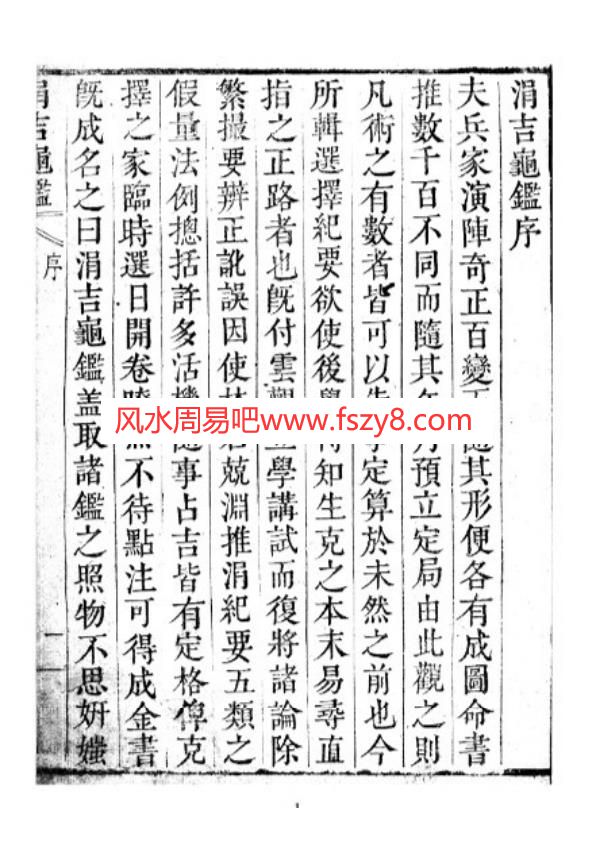 涓吉龜鑑序
夫兵家演陣奇正百變 隨其形便各有成圖命書
推數千百不同而隨其 預立定局由此觀之則
凡術之有數者皆可以 定算於未然之前也今
所輯選擇紀要欲使後 得知生克之本末易尋直
指之正路者也旣付雲觀 學講試而復將諸論除
繁撮要辨正訛誤因使 兢淵推涓紀要五類之
假量法例摠括許多活機 隨事占吉皆有定格俾克
擇之家臨時選日開卷 不待點注可得成金書
旣成名之曰涓吉龜鑑盖取諸鑑之照物不思妍媸
涓吉龜鑑
序
一
风水周易吧www.fszy8.com